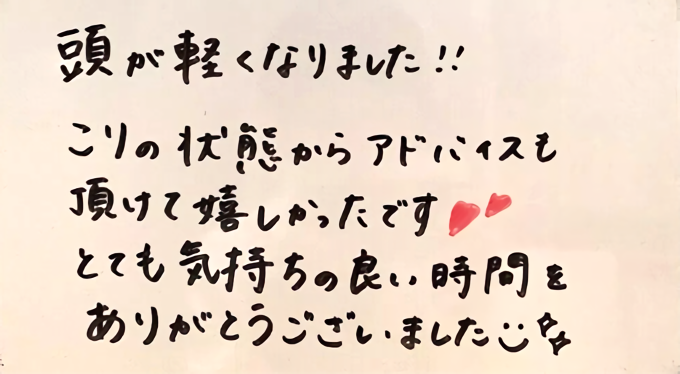 頭が軽くなりました!!
こりの状態からアドバイスも
頂けて嬉しかったです
とても気持ちの良い時間を
ありがとうございました